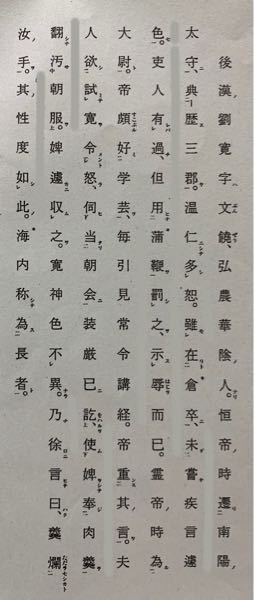 後漢劉寛字文饒、弘農華陰人。恒帝時遷南陽
太守、典歴三郡。温仁多恕。雖在倉卒、未嘗疾言遽
色。吏人有過、但用蒲鞭罰之、示辱而已。霊帝時為
大尉。帝頗好学芸、毎引見常令講経。帝重其言。夫
人欲試寛令怒、伺当朝会装厳已訖、使婢奉肉羹
翻汚朝服。婢遽収之。寛神色不異。乃徐言曰、羹爛
汝手。其性度如此。海内称為長者。